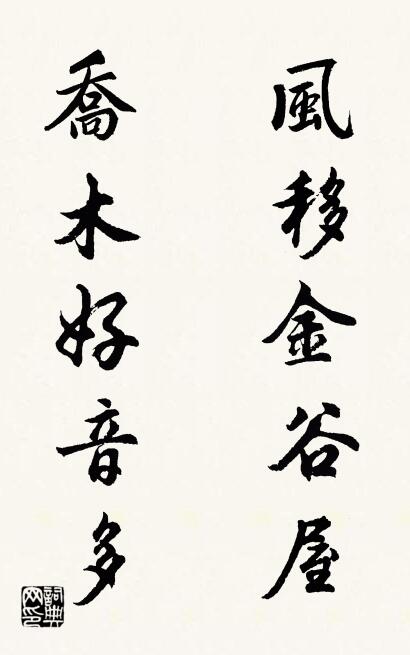 風移金谷屋
喬木好音多
詞典網印